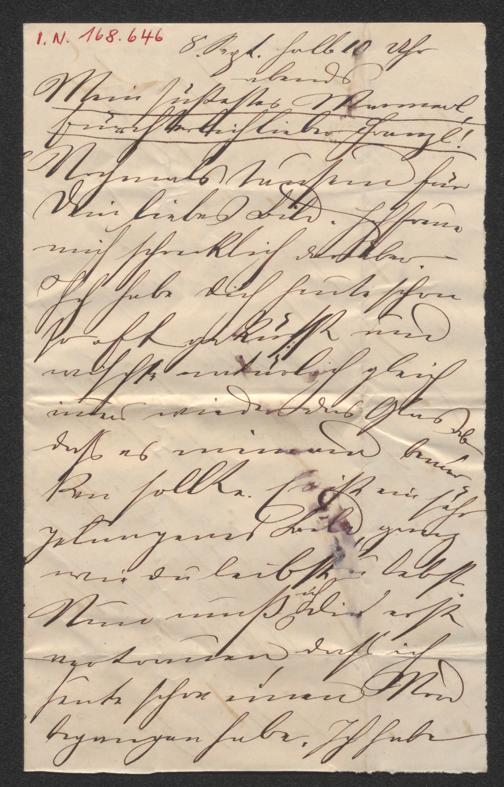 I.N. 168.646
8. Sept. halb 10 Uhr
abends
Mein süßestes Murmerl,
fürchterlich lieber Franzl!
Nochmals tausend für
Dein liebes Bild. Ich freue
mich schrecklich darüber –
Ich habe dich heute schon
so oft geküßt und
wischte natürlich gleich
immer wieder das Glas ab
daß es niemand bemer
ken sollte. Es ist ein sehr
gelungenes Bild, ganz
wie du leibst u. lebst.
Nun muß ich Dir erst
daß ich
heute schon einen Mord
begangen habe. Ich habe